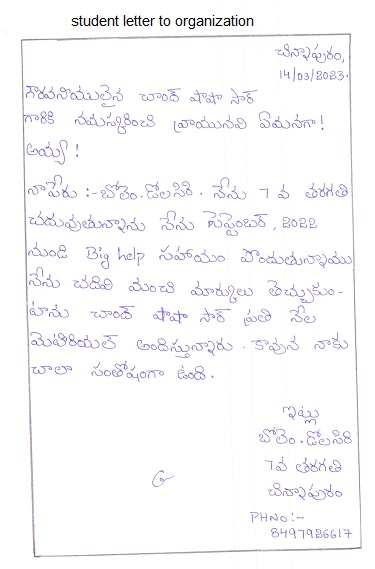 student letter to organization
చిన్నాపురం,
14/03/2023.
గౌరవనియులైన చాంద్ పాషా సార్
గారికి నమస్కరించి వ్రాయునది ఏమనగా!
అయ్యా!
నాపేరు :- బోలెం. డోలసిరి. నేను 7 వ తరగతి
చదువుతున్నాను నేను సెప్టెంబర్, 2022
నుండి Big help సహాయం పొందుతున్నాము
నేను చదివి మంచి మార్కులు తెచ్చుకుం-
టాను చాంద్ పాషా సార్ ప్రతి నేల
మెటిరియల్ అందిస్తున్నారు. కావున నాకు
చాలా సంతోషంగా ఉంది.
ఇట్లు
బోలెం. డోలసిరి
7వ తరగతి
చిన్నాపురం
PHNO :-
8497986617